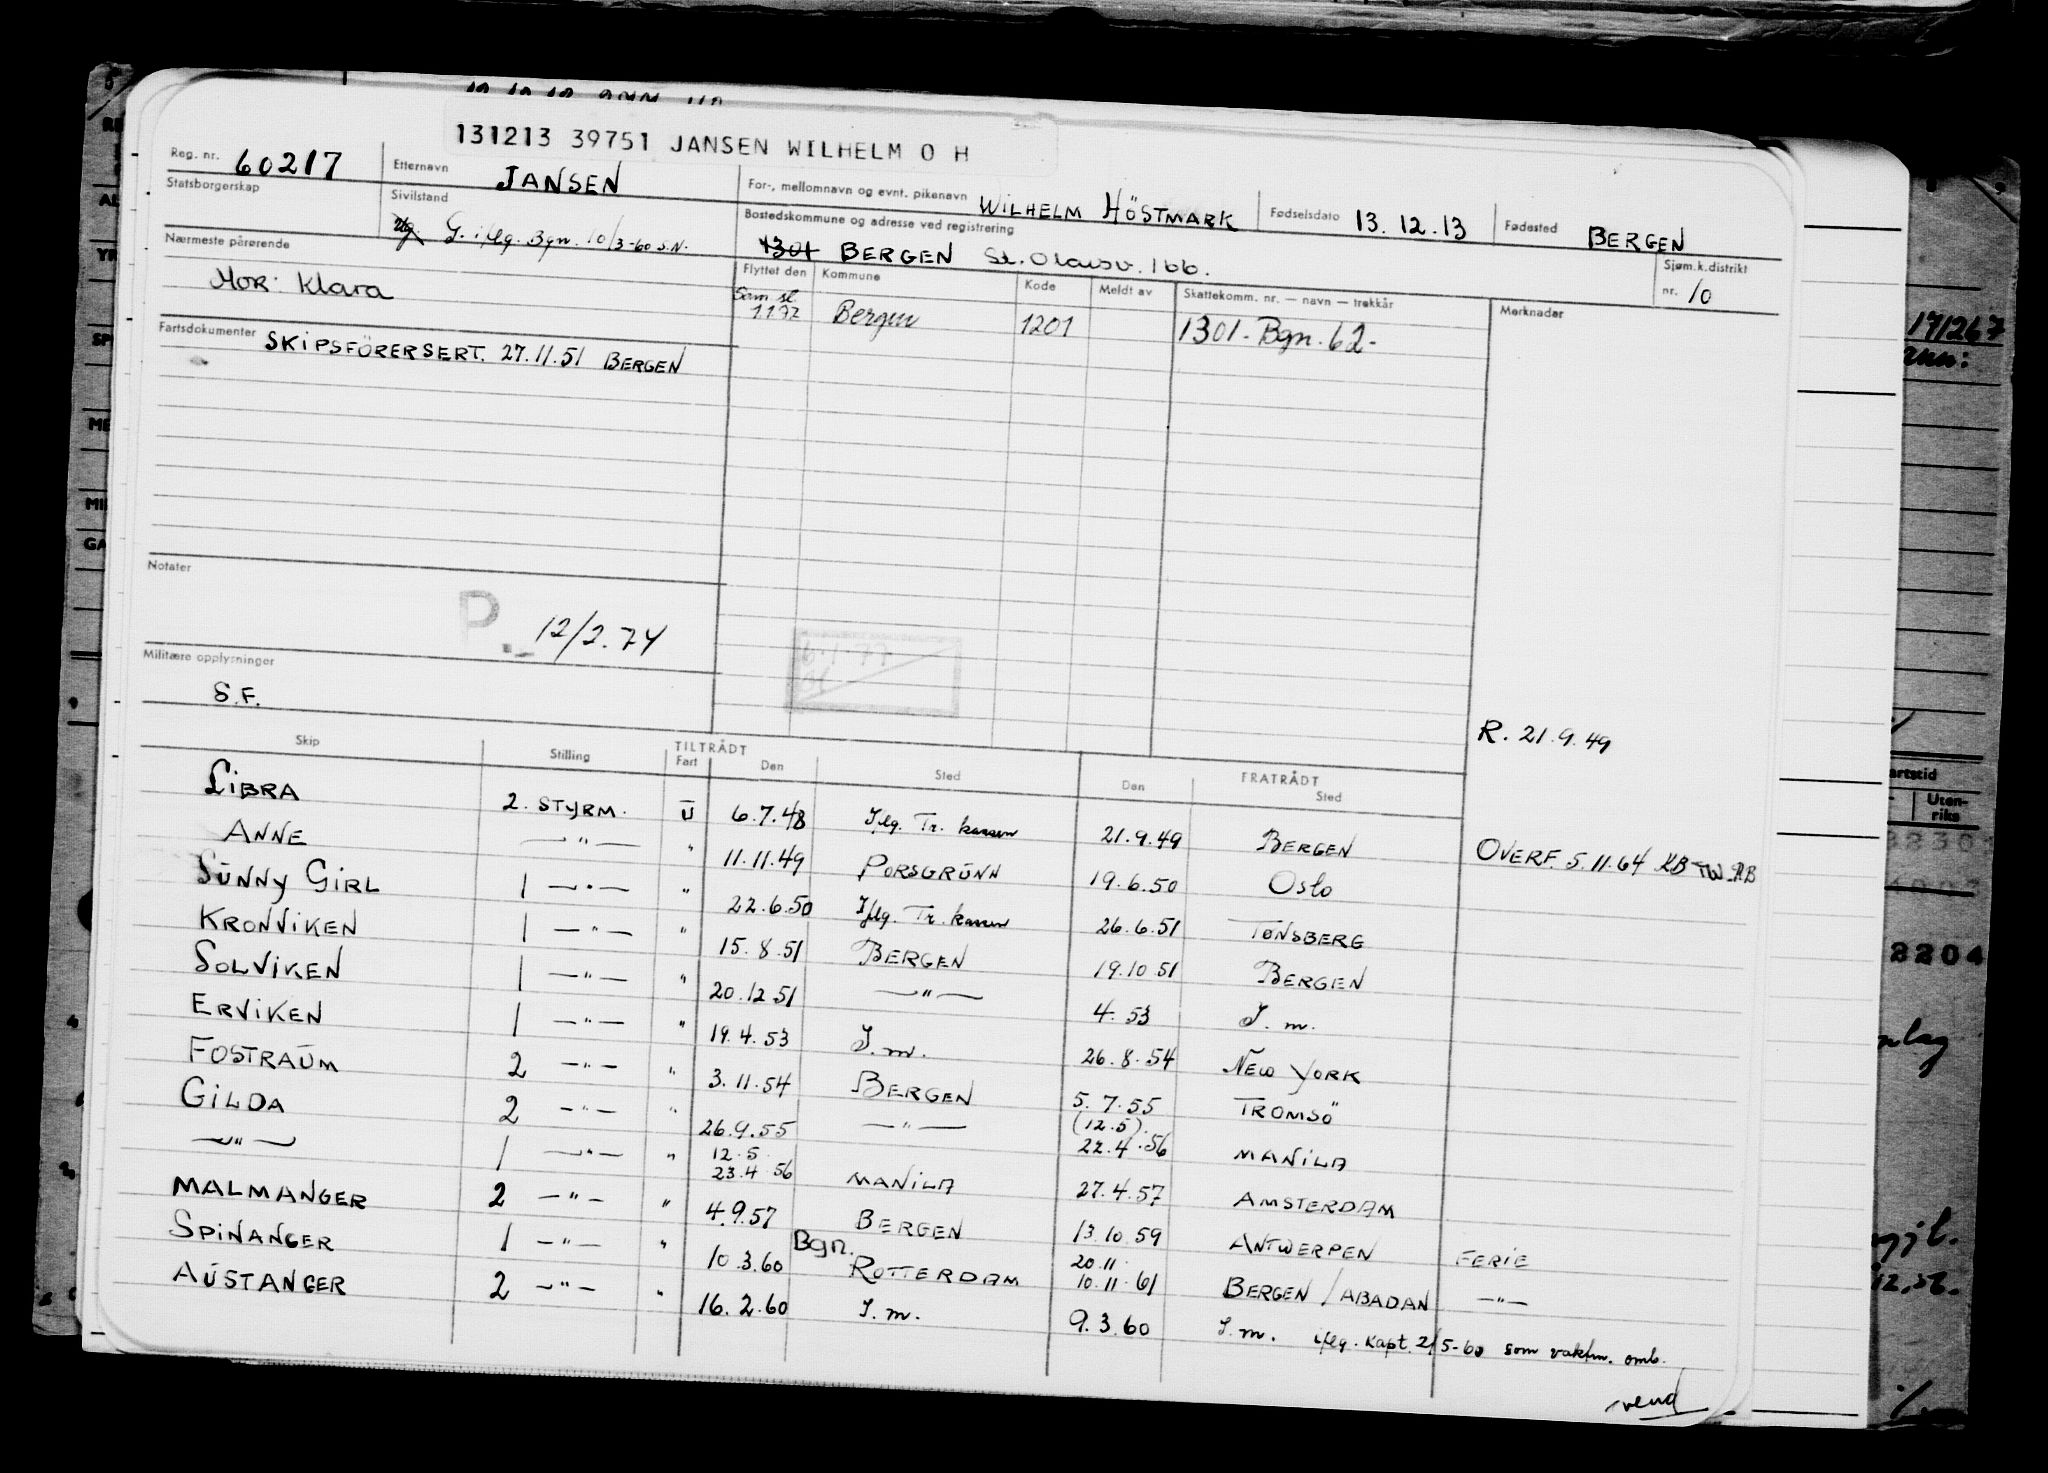 131213 39751 JANSEN WILHELM O H
Reg. nr. 60217 Etternavn JANSEN For-, mellomnavn og evnt. pikenavn WILHELM HÖSTMARK Fødselsdato 13.12.13 Fødested BERGEN
Statsborgerskap Sivilstand Ug. G. iflg. Bgn. 10/3-60 S.N. Bostedskommune og adresse ved registrering 1301 BERGEN St. Olavsv. 16b. Sjøm.k.distrikt nr. 10
Nærmeste pårørende MOR: Klara
Flyttet den Kommune Kode Meldt av Skattekomm. nr. — navn — trekkår Merknader
Sam st. 1172 Bergen 1201 1301-Bgn.62-
Fartsdokumenter SKIPSFÖRERSERT. 27.11.51 BERGEN
Notater
P. 12/2.74
Militære opplysninger
S.F.
R. 21.9.49
Skip Stilling TILTRÅDT Fart Den Sted FRATRÅDT Den Sted
LIBRA 2. STYRM. U 6.7.48 Iflg. Tr. kassen 21.9.49 BERGEN OVERF. 5.11.64 KB TW RB
ANNE —"— " 11.11.49 PORSGRUNN 19.6.50 OSLO
SUNNY GIRL 1 —"— " 22.6.50 Iflg. Tr. kassen 26.6.51 TØNSBERG
KRONVIKEN 1 —"— " 15.8.51 BERGEN 19.10.51 BERGEN
SOLVIKEN 1 —"— " 20.12.51 —"— 4.53 I.m.
ERVIKEN 1 —"— " 19.4.53 I.m. 26.8.54 NEW YORK
FOSTRAUM 2 —"— " 3.11.54 BERGEN 5.7.55 TROMSÖ
GILDA 2 —"— " 26.9.55 —"— (12.5). 22.4.56 MANILA
—"— 1 —"— " 12.5 23.4.56 MANILA 27.4.57 AMSTERDAM
MALMANGER 2 —"— " 4.9.57 BERGEN 13.10.59 ANTWERPEN FERIE
SPINANGER 1 —"— " 10.3.60 Bgn. ROTTERDAM 20.11 10.11.61 BERGEN / ABADAN —"—
AUSTANGER 2 —"— " 16.2.60 I.m. 9.3.60 I.m. iflg. Kapt. 2/5-60 som vaktm. omb.
vend
171267
artstid
Uten-
riks
2204